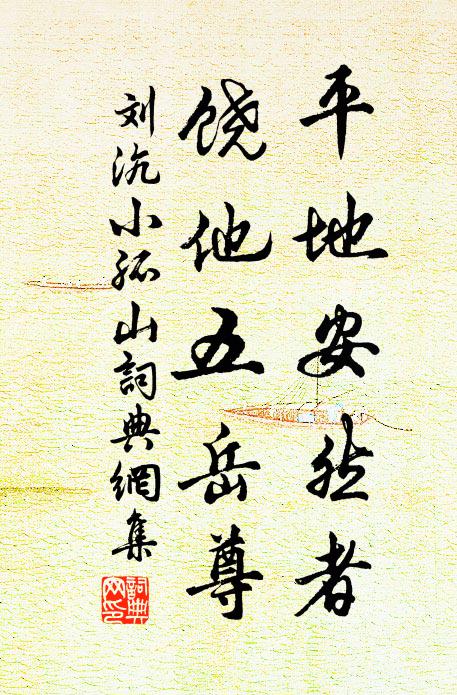 平地安然者
饶他五岳尊
刘沆小孤山詞典網集
詞典
网印